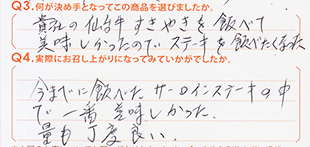 Q3.何が決め手となってこの商品を選びましたか。
貴社の仙台牛すきやきを飯べて
美味しかったのでステーキを飯べたくなった
Q4.実際にお召し上がりになってみていかがでしたか。
今までに飯べたサーロインステーキの中
で一番美味しかった。
量も丁度良い。